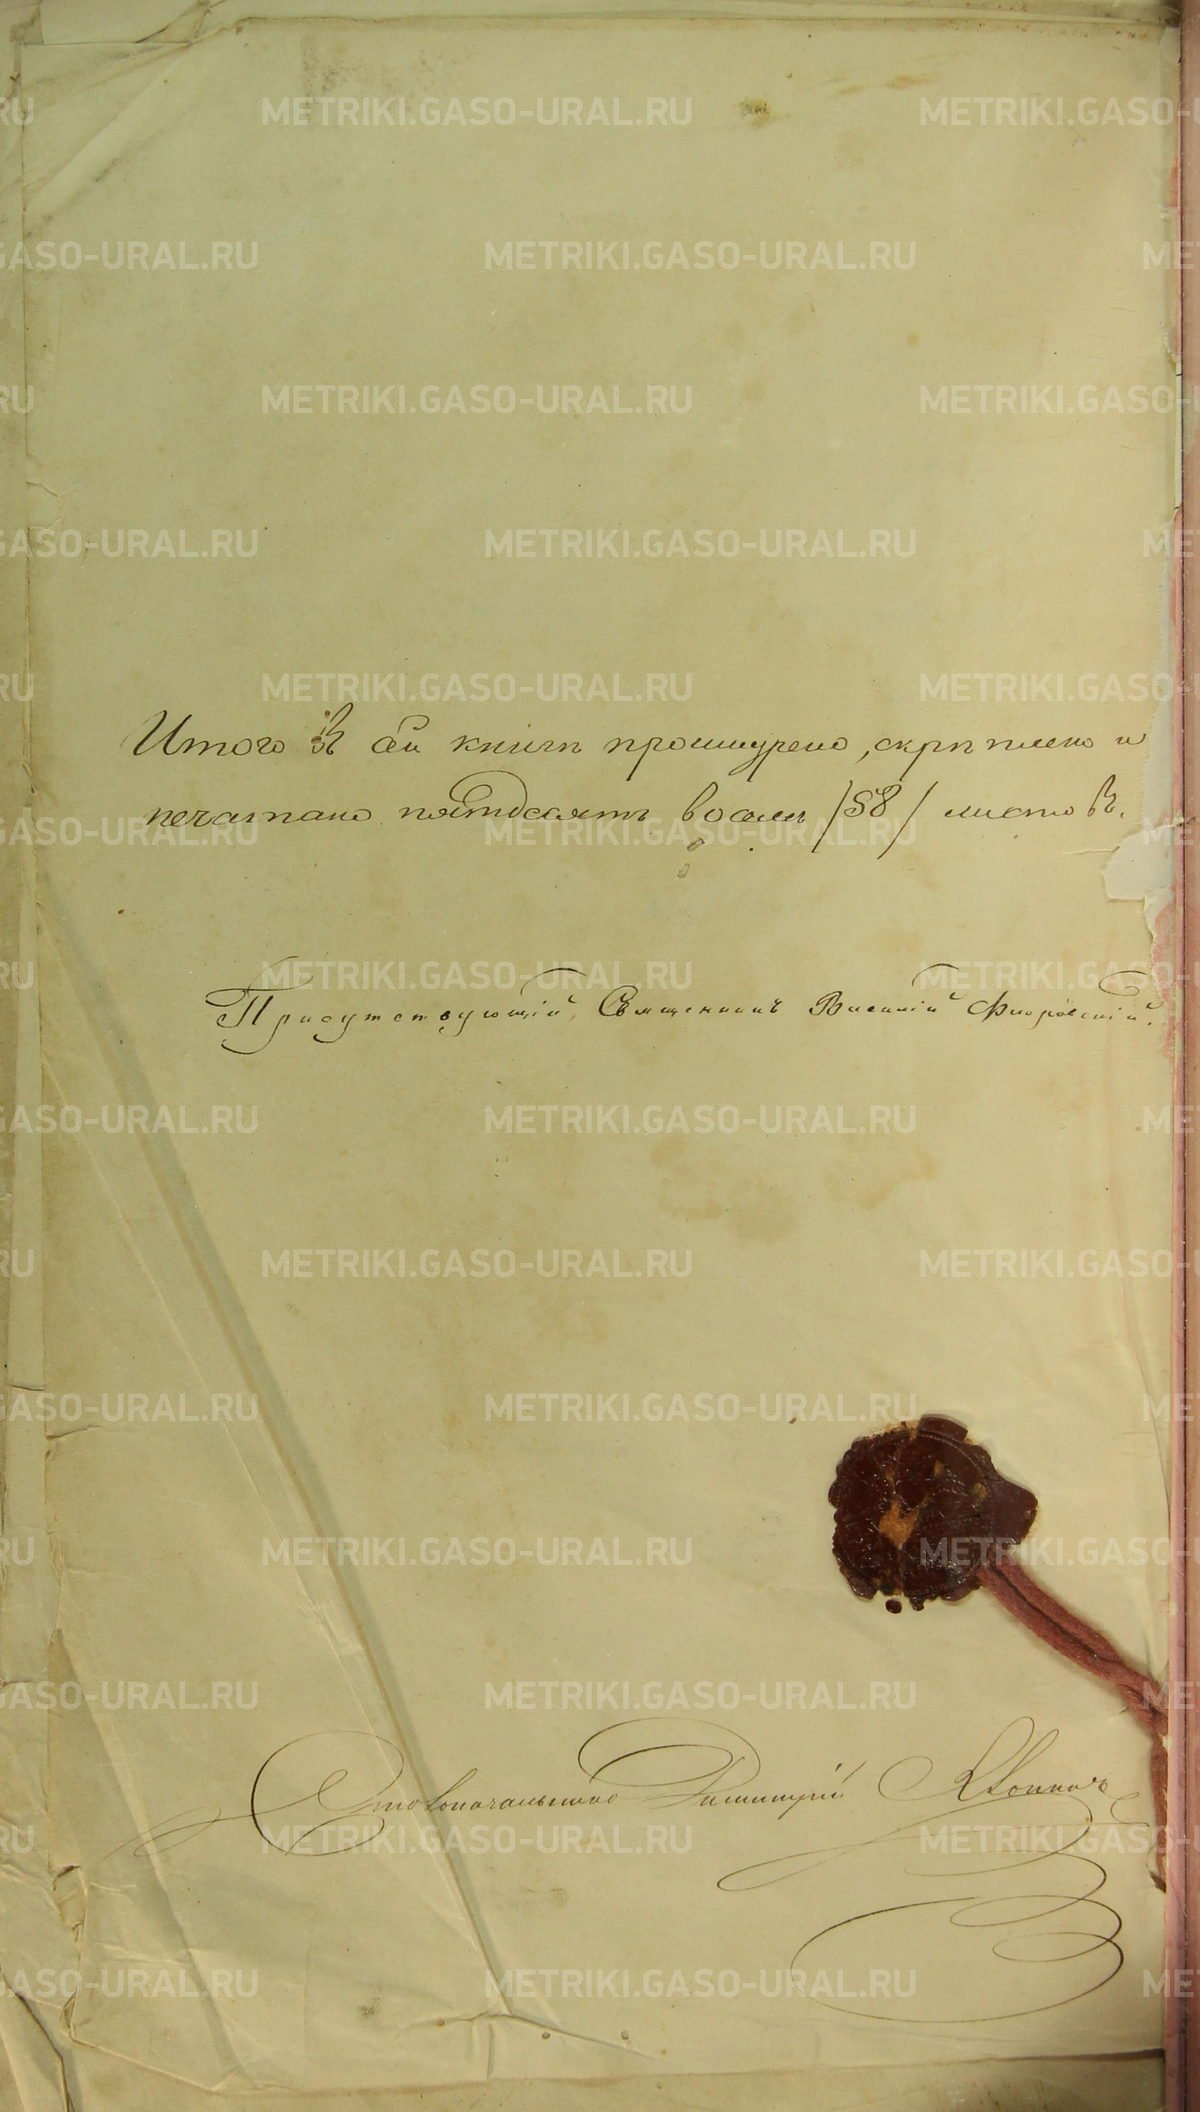 Итого въ сей книгѣ прошнурено, скрѣплено и
печатано пятьдесятъ восемь /58/ листовъ.
Присутствующій, Священникъ Василій
Столоначальникъ Димитрій
METRIKI.GASO-URAL.RU